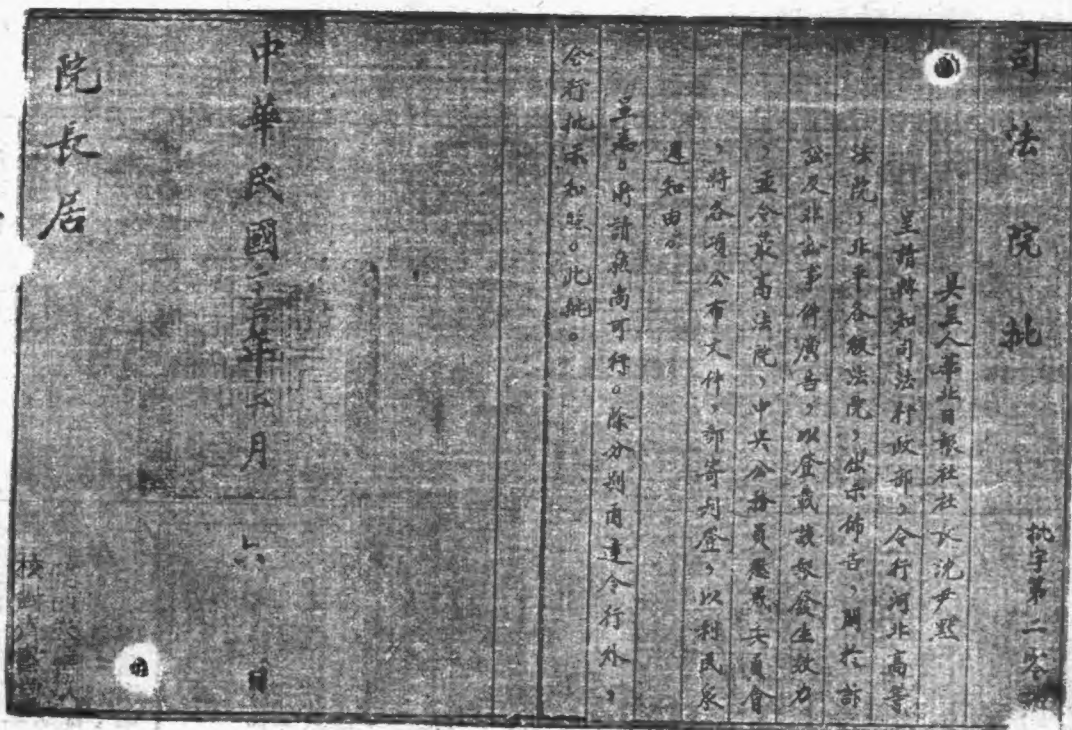 司法院批
批字第二零
具呈人華北日報社社長沈尹默
呈請轉知司法行政部，令行河北高等
法院，北平各級法院，出示佈告，關於訴
訟及非訟事件廣告，以登載該報發生效力
，並令最高法院，中央公務員懲戒委員會
，將各項公布文件，郵寄刊登，以利民眾
週知由。
呈悉。所請核尚可行。除分別函達令行外，
合行批示知照。此批。
中華民國二十年五月六日
院長居
校對